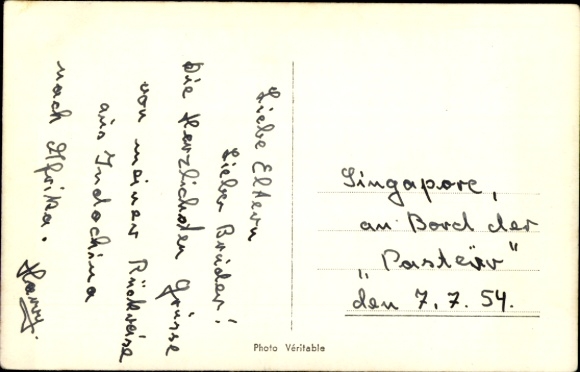 Liebe Eltern
Lieber Bruder!
Die Herzlichsten Grüsse
von meiner Rückreise
aus Indochina
nach Afrika.
Harry.
Singapore,
an Bord der
„Pasteur"
den 7.7.54.
Photo Véritable